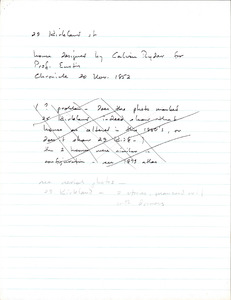 29 Kirkland St
house designed by Calvin Ryder for
Prof. Eustis
Chronicle 20 Nov. 1852
(? problem - Does this photo marked
25 Kirkland indeed show that
house as altered in the 1880's, or
does it show 29 Kirk-?
The 2 houses were similar in
configuration in 1873 atlas
29 Kirkland is 2 stories